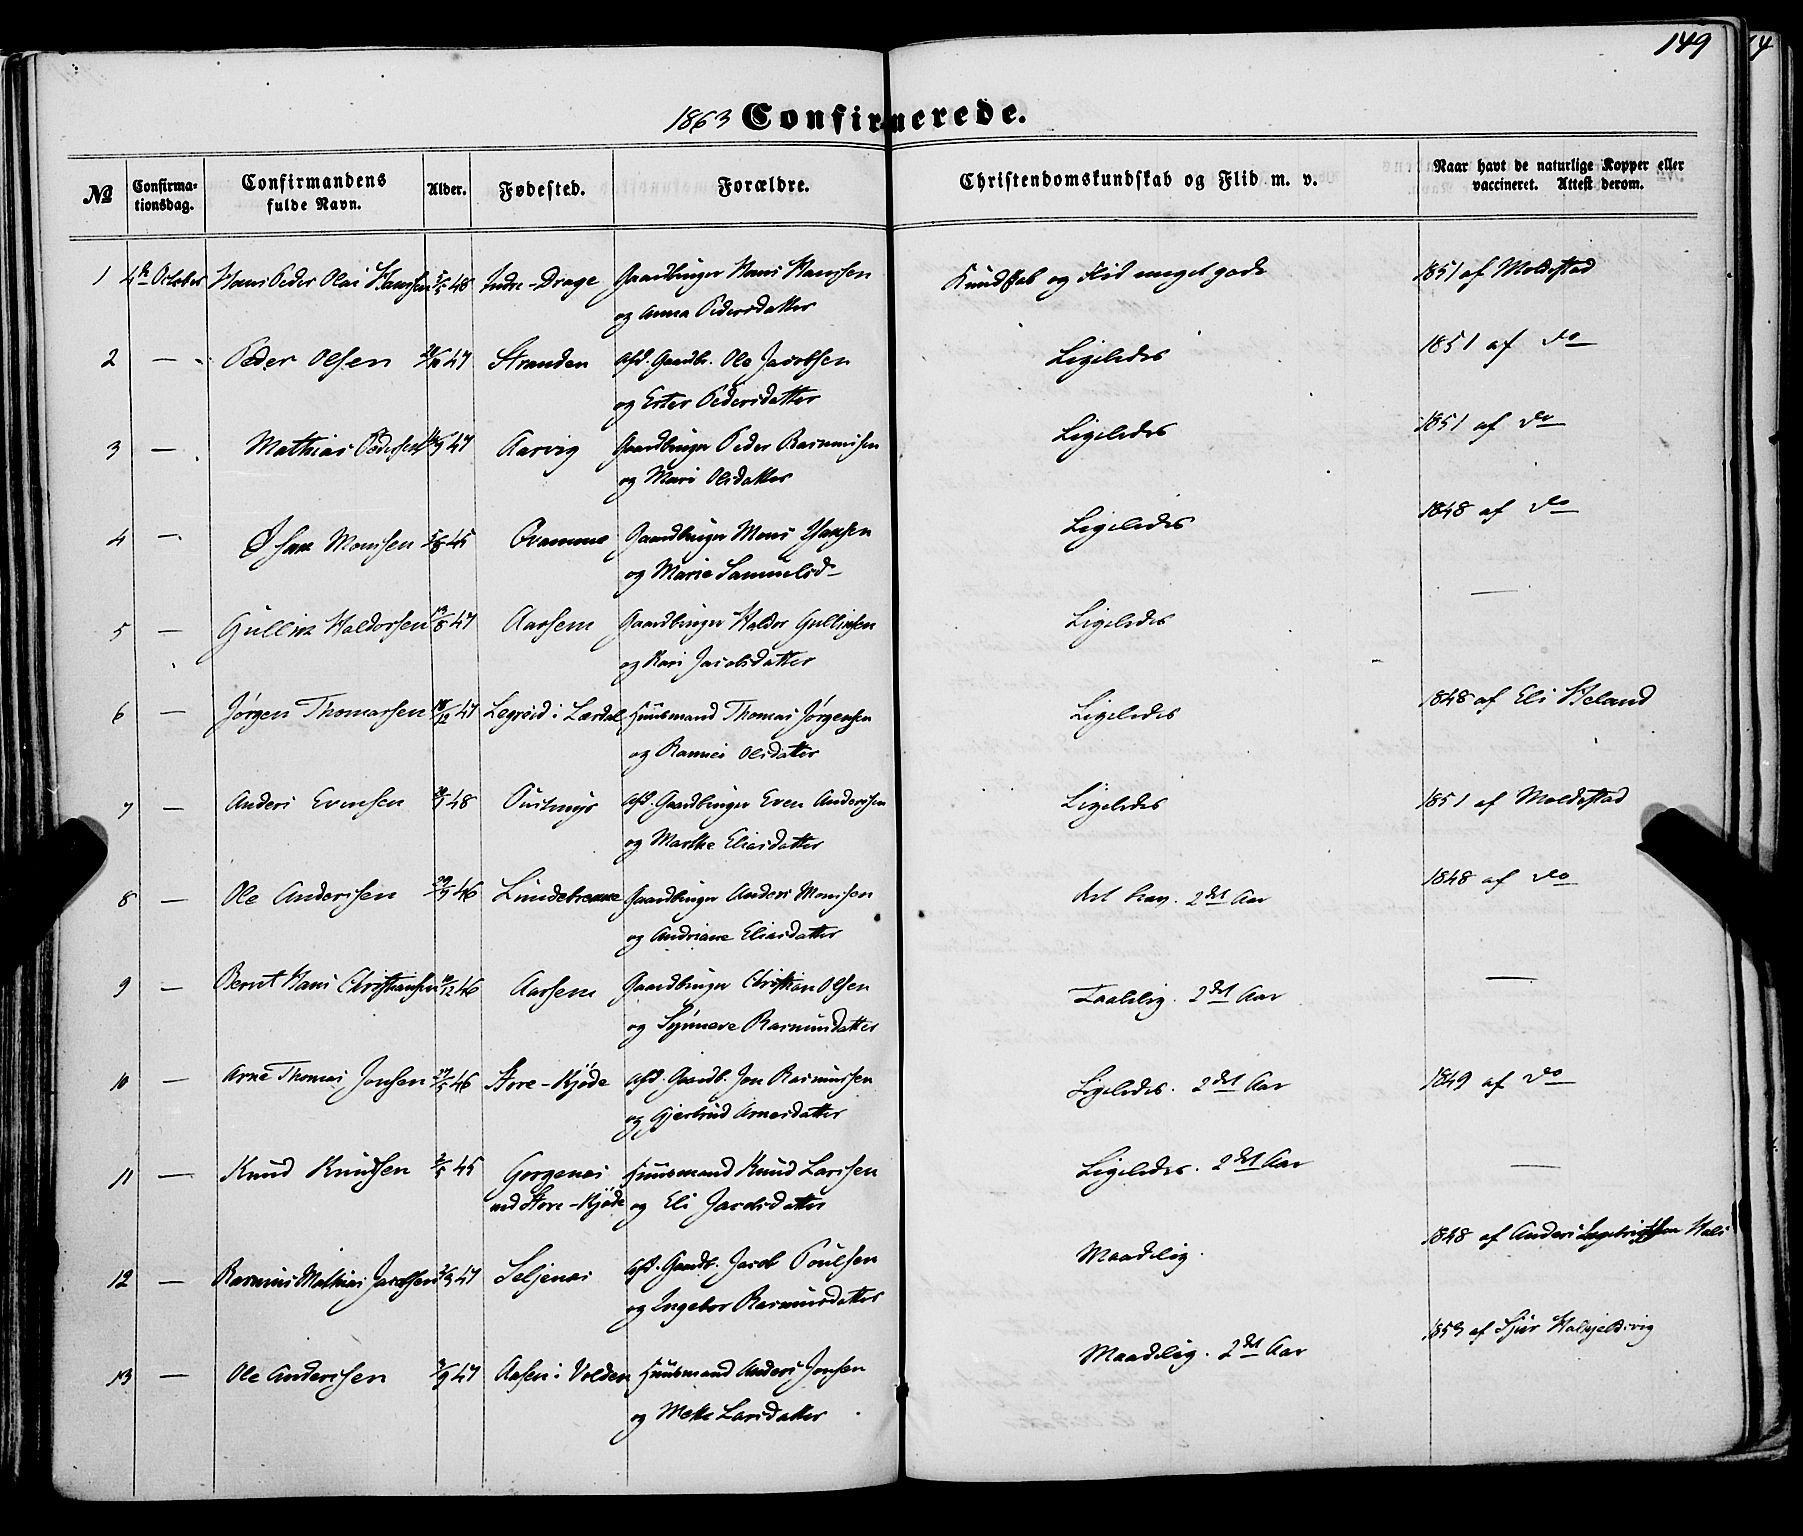 149
1863 Confirmerede.
No Confirmationsdag. Confirmandens fulde Navn. Alder. Fødested. Forældre. Christendomskundskab og Flid m. v. Naar havt de naturlige Kopper eller vaccineret. Attest derom.
1 4de October Hans Peder Olai Hansen 48 Indre-Drage Gaardbruger Hans Hansen Kundskab og Flid meget gode 1851 af Moldestad
og Anna Pedersdatter
2 — Peder Olsen 47 Stranden Afd. Gaardbr. Ole Jacobsen Ligeledes 1851 af do
og Ester Pedersdatter
3 — Mathias Pedersen 47 Aarvig Gaardbruger Peder Rasmussen Ligeledes 1851 af do
og Mari Olsdatter
4 — Monssen 45 Qvamme Gaardbruger Mons Ligeledes 1848 af do
og Marie Samuelsd
5 — Gullik Haldorsen 47 Aarsem Gaardbruger Haldor Gulliksen Ligeledes —
og Kari Jacobsdatter
6 — Jørgen Thomassen 18/12 47 Legreid i Lærdal Huusmand Thomas Jørgensen Ligeledes 1848 af Eli Heland
og Rannei Olsdatter
7 — Anders Evensen 48 Afd. Gaardbruger Even Andersen Ligeledes 1851 af Moldestad
og Marthe Eliasdatter
8 — Ole Andersen 46 Lundebrekke Gaardbruger Anders Monssen 2det Aar 1848 af do
og Andriane Eliasdatter
9 — Bernt Hans Christiansen 12 46 Aarsem Gaardbruger Christian Olsen Taalelig. 2det Aar —
og Synneve Rasmusdatter
10 — Arne Thomas Jonsen 27/5 46 Store-Kjøde Afd. Gaardb. Jon Rasmussen Ligeledes. 2det Aar 1849 af do
og Gjertrud Arnesdatter
11 — Knud Knudsen 2/5 45 Gorgenes Huusmand Knud Larssen Ligeledes. 2det Aar —
ved Store-Kjøde og Eli Jacobsdatter
12 — Rasmus Mathias Jacobsen 47 Seljenes Afd. Gaardb. Jacob Poulsen Maadelig. 1848 af Anders Ingebrigtsen Hals
og Ingebor Rasmusdatter
13 — Ole Andersen 47 Aasen i Volden Huusmand Anders Jonsen Maadelig. 2det Aar 1853 af Sjur
og Mette Larsdatter